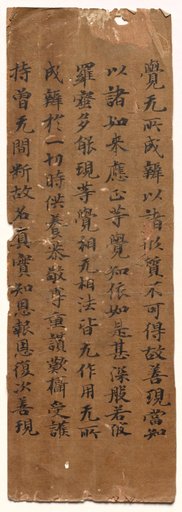 覺无所成辦以諸形質不可得故善現當知
以諸如來應正等覺知依如是甚深般若波
羅蜜多能現等覺相无相法皆无作用无所
成辦於一切時供養恭敬尊重讃歎攝受護
持曾无間斷故名真實知恩報恩復次善現